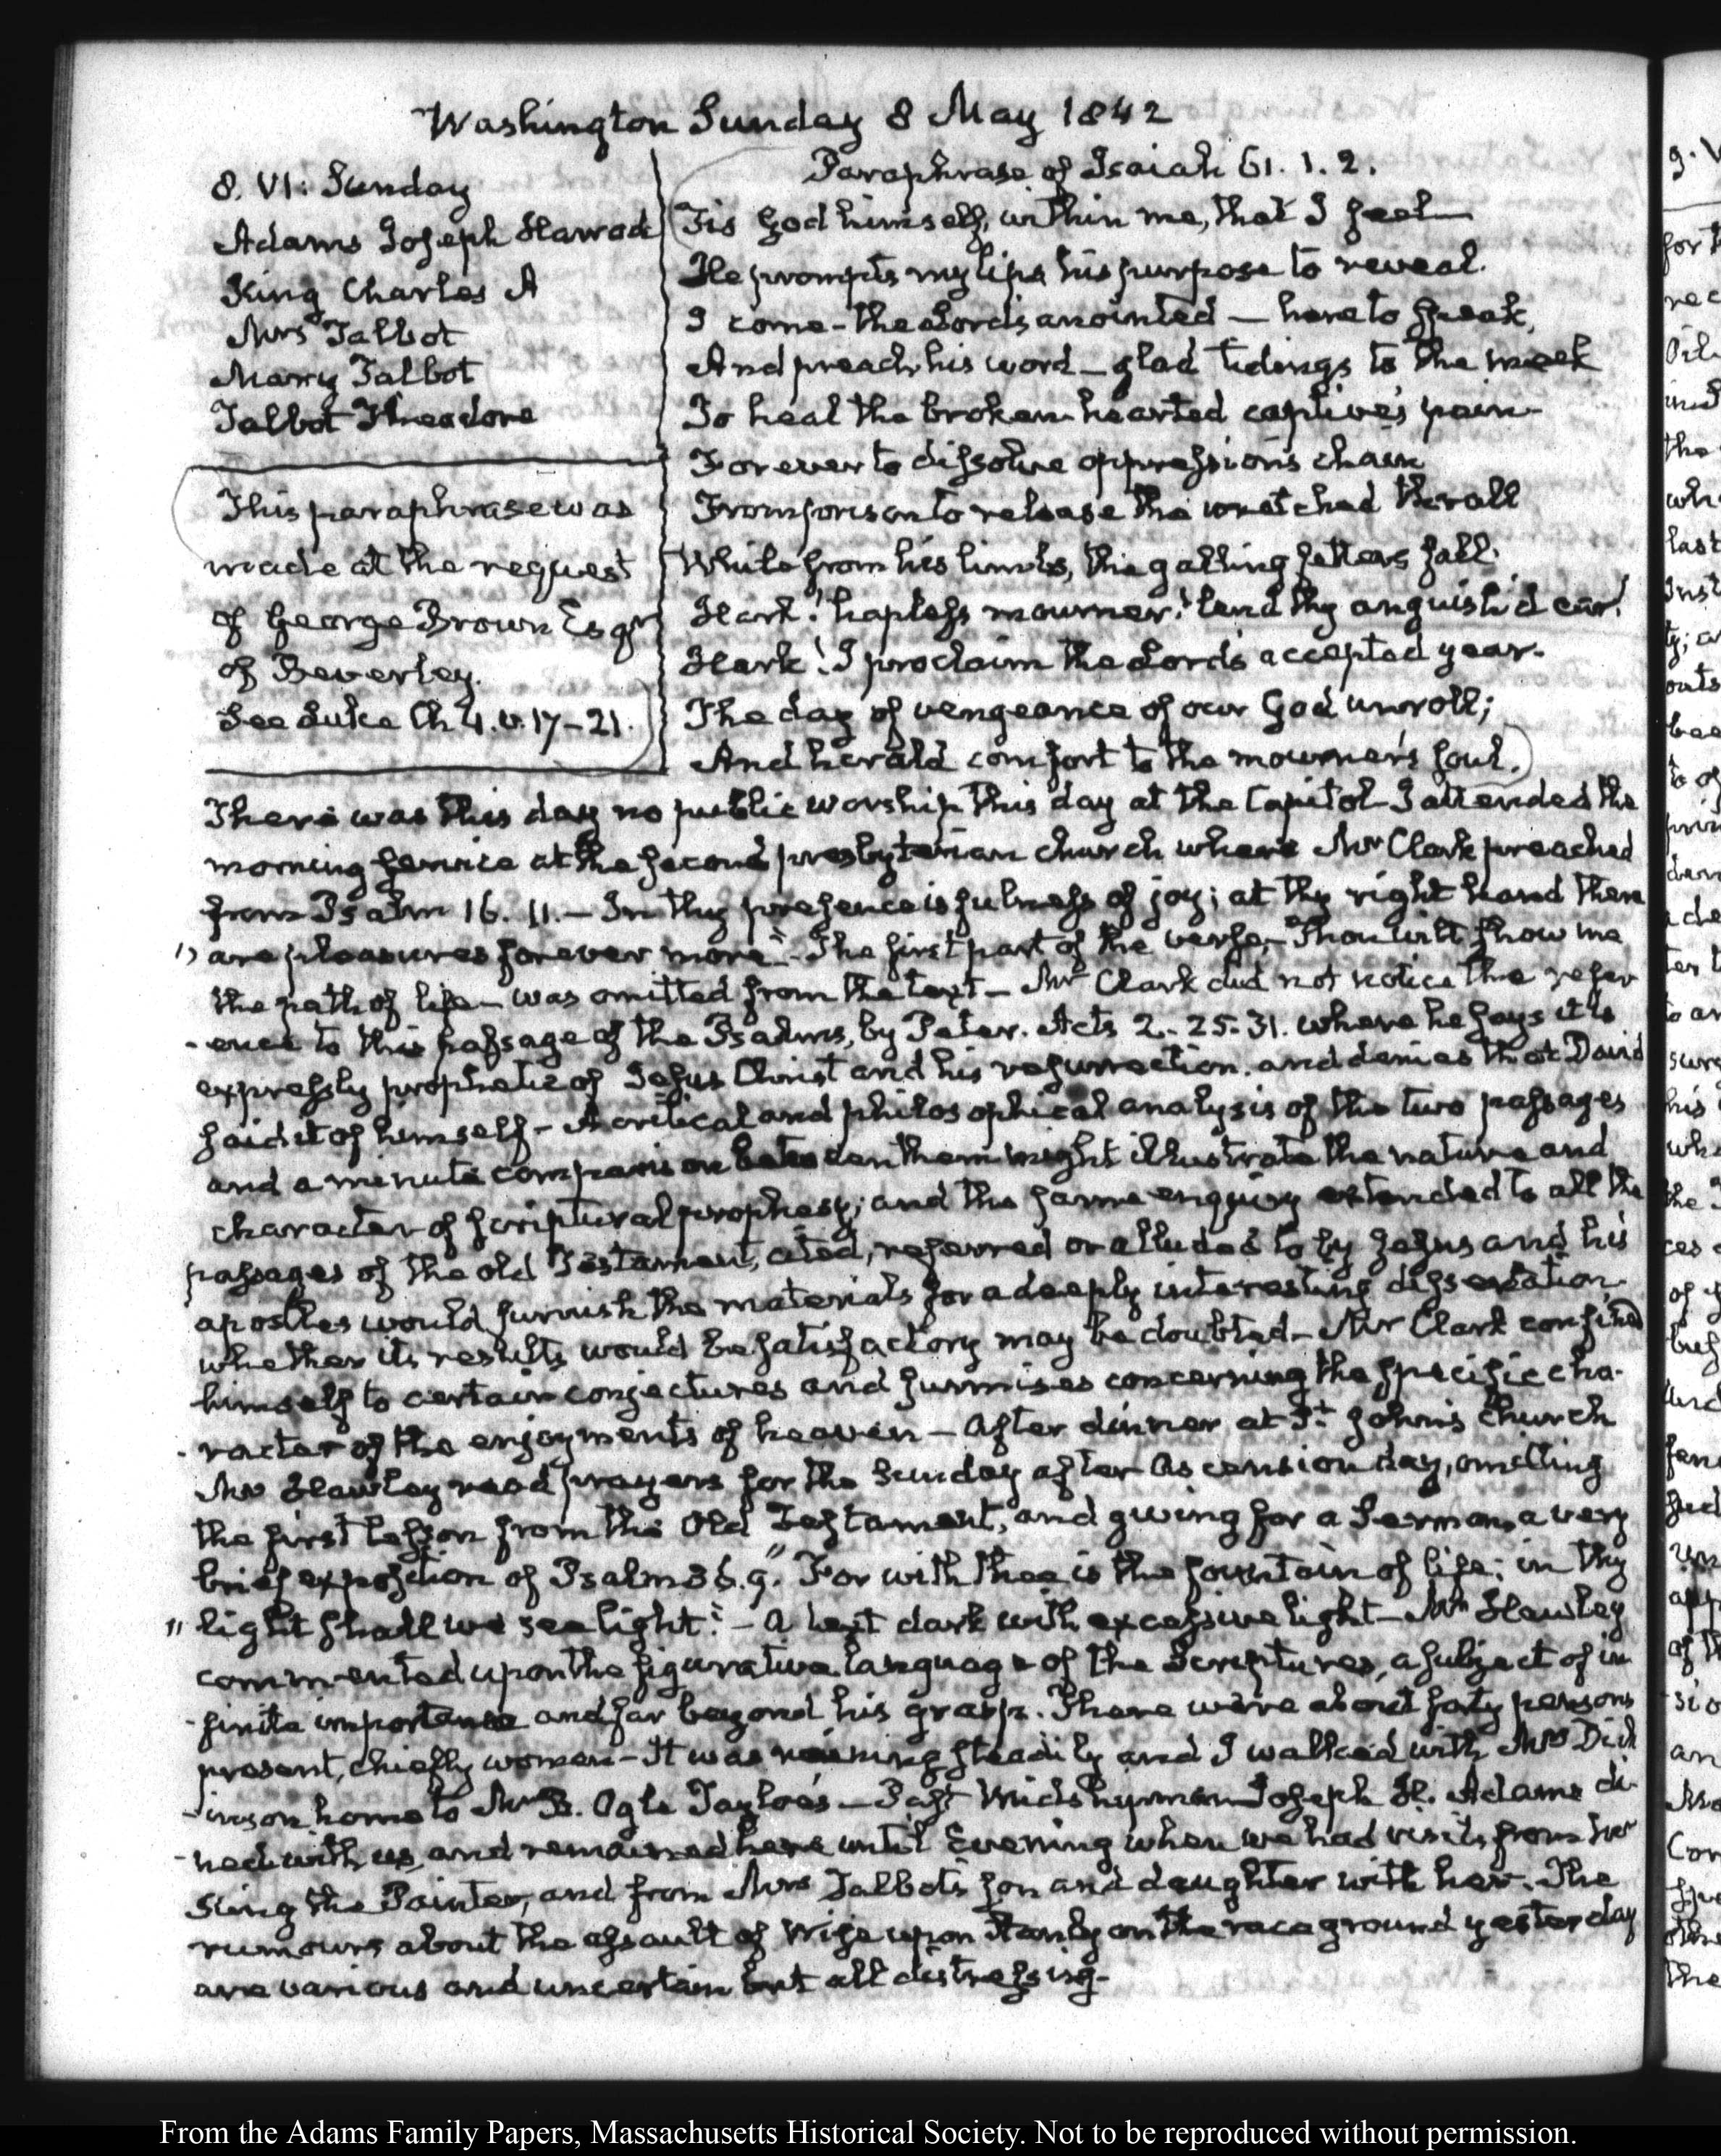 Washington Sunday 8 May 1842
8. VI: Sunday
Adams Joseph Harrod
King Charles A
Mrs Talbot
Mary Talbot
Talbot Theodore
This paraphrase was
made at the request
of George Brown Esqr
of Beverley.
See Luke Ch 4. v. 17-21.
Paraphrase of Isaiah 61. 1. 2.
Tis God himself, within me, that I feel—
He prompts my lips his purpose to reveal.
I come - the Lord's anointed — here to speak,
And preach his word — glad tidings to the meek
To heal the broken hearted captive's pain—
Forever to dissolve oppression's chain
From prison to release the wretched thrall
While from his limbs, the galling fetters fall.
Hark! hapless mourner! lend thy anguish'd ear!
Hark! I proclaim the Lord's accepted year—
The day of vengeance of our God unroll;
And herald comfort to the mourner's soul.
There was this day no public worship this day at the Capitol I attended the
morning service at the second presbyterian church where Mr Clark preached
from Psalm 16. 11.— In thy presence is fulness of joy; at thy right hand there
" are pleasures forever more"— The first part of the verse,— Thou wilt show me
the path of life — was omitted from the text — Mr Clark did not notice the refer
-ence to this passage of the Psalms, by Peter. Acts 2.- 25-31. where he says it is
expressly prophetic of Jesus Christ and his resurrection. and denies that David
said it of himself — A critical and philosophical analysis of the two passages
and a minute comparison between them might illustrate the nature and
character of scriptural prophesy; and the same enquiry extended to all the
passages of the old Testament, cited, referred or alluded to by Jesus and his
apostles would furnish the materials for a deeply interesting dissertation
whether its results would be satisfactory may be doubted — Mr Clark confined
himself to certain conjectures and surmises concerning the specific cha-
-racter of the enjoyments of heaven — After dinner at St. John's church
Mr Hawley read prayers for the Sunday after Ascension day, omitting
the first lesson from the Old Testament, and giving for a Sermon, a very
brief exposition of Psalm 36. 9. "For with thee is the fountain of life; in thy
" light shall we see light": — a text dark with excessive light — Mr Hawley
commented upon the figurative language of the Scriptures, a subject of in
-finite importance and far beyond his grasp. There were about forty persons
present, chiefly women — It was raining steadily and I walked with Mrs Dick
-inson home to Mr B. Ogle Tayloe's — Past Midshipman Joseph H. Adams di-
-ned with us, and remained here until Evening when we had visits from Mr
King the Painter, and from Mrs Talbot's son and daughter with her. The
rumours about the assault of Wise upon Stanly on the race ground yesterday
are various and uncertain but all distressing—
From the Adams Family Papers, Massachusetts Historical Society. Not to be reproduced without permission.